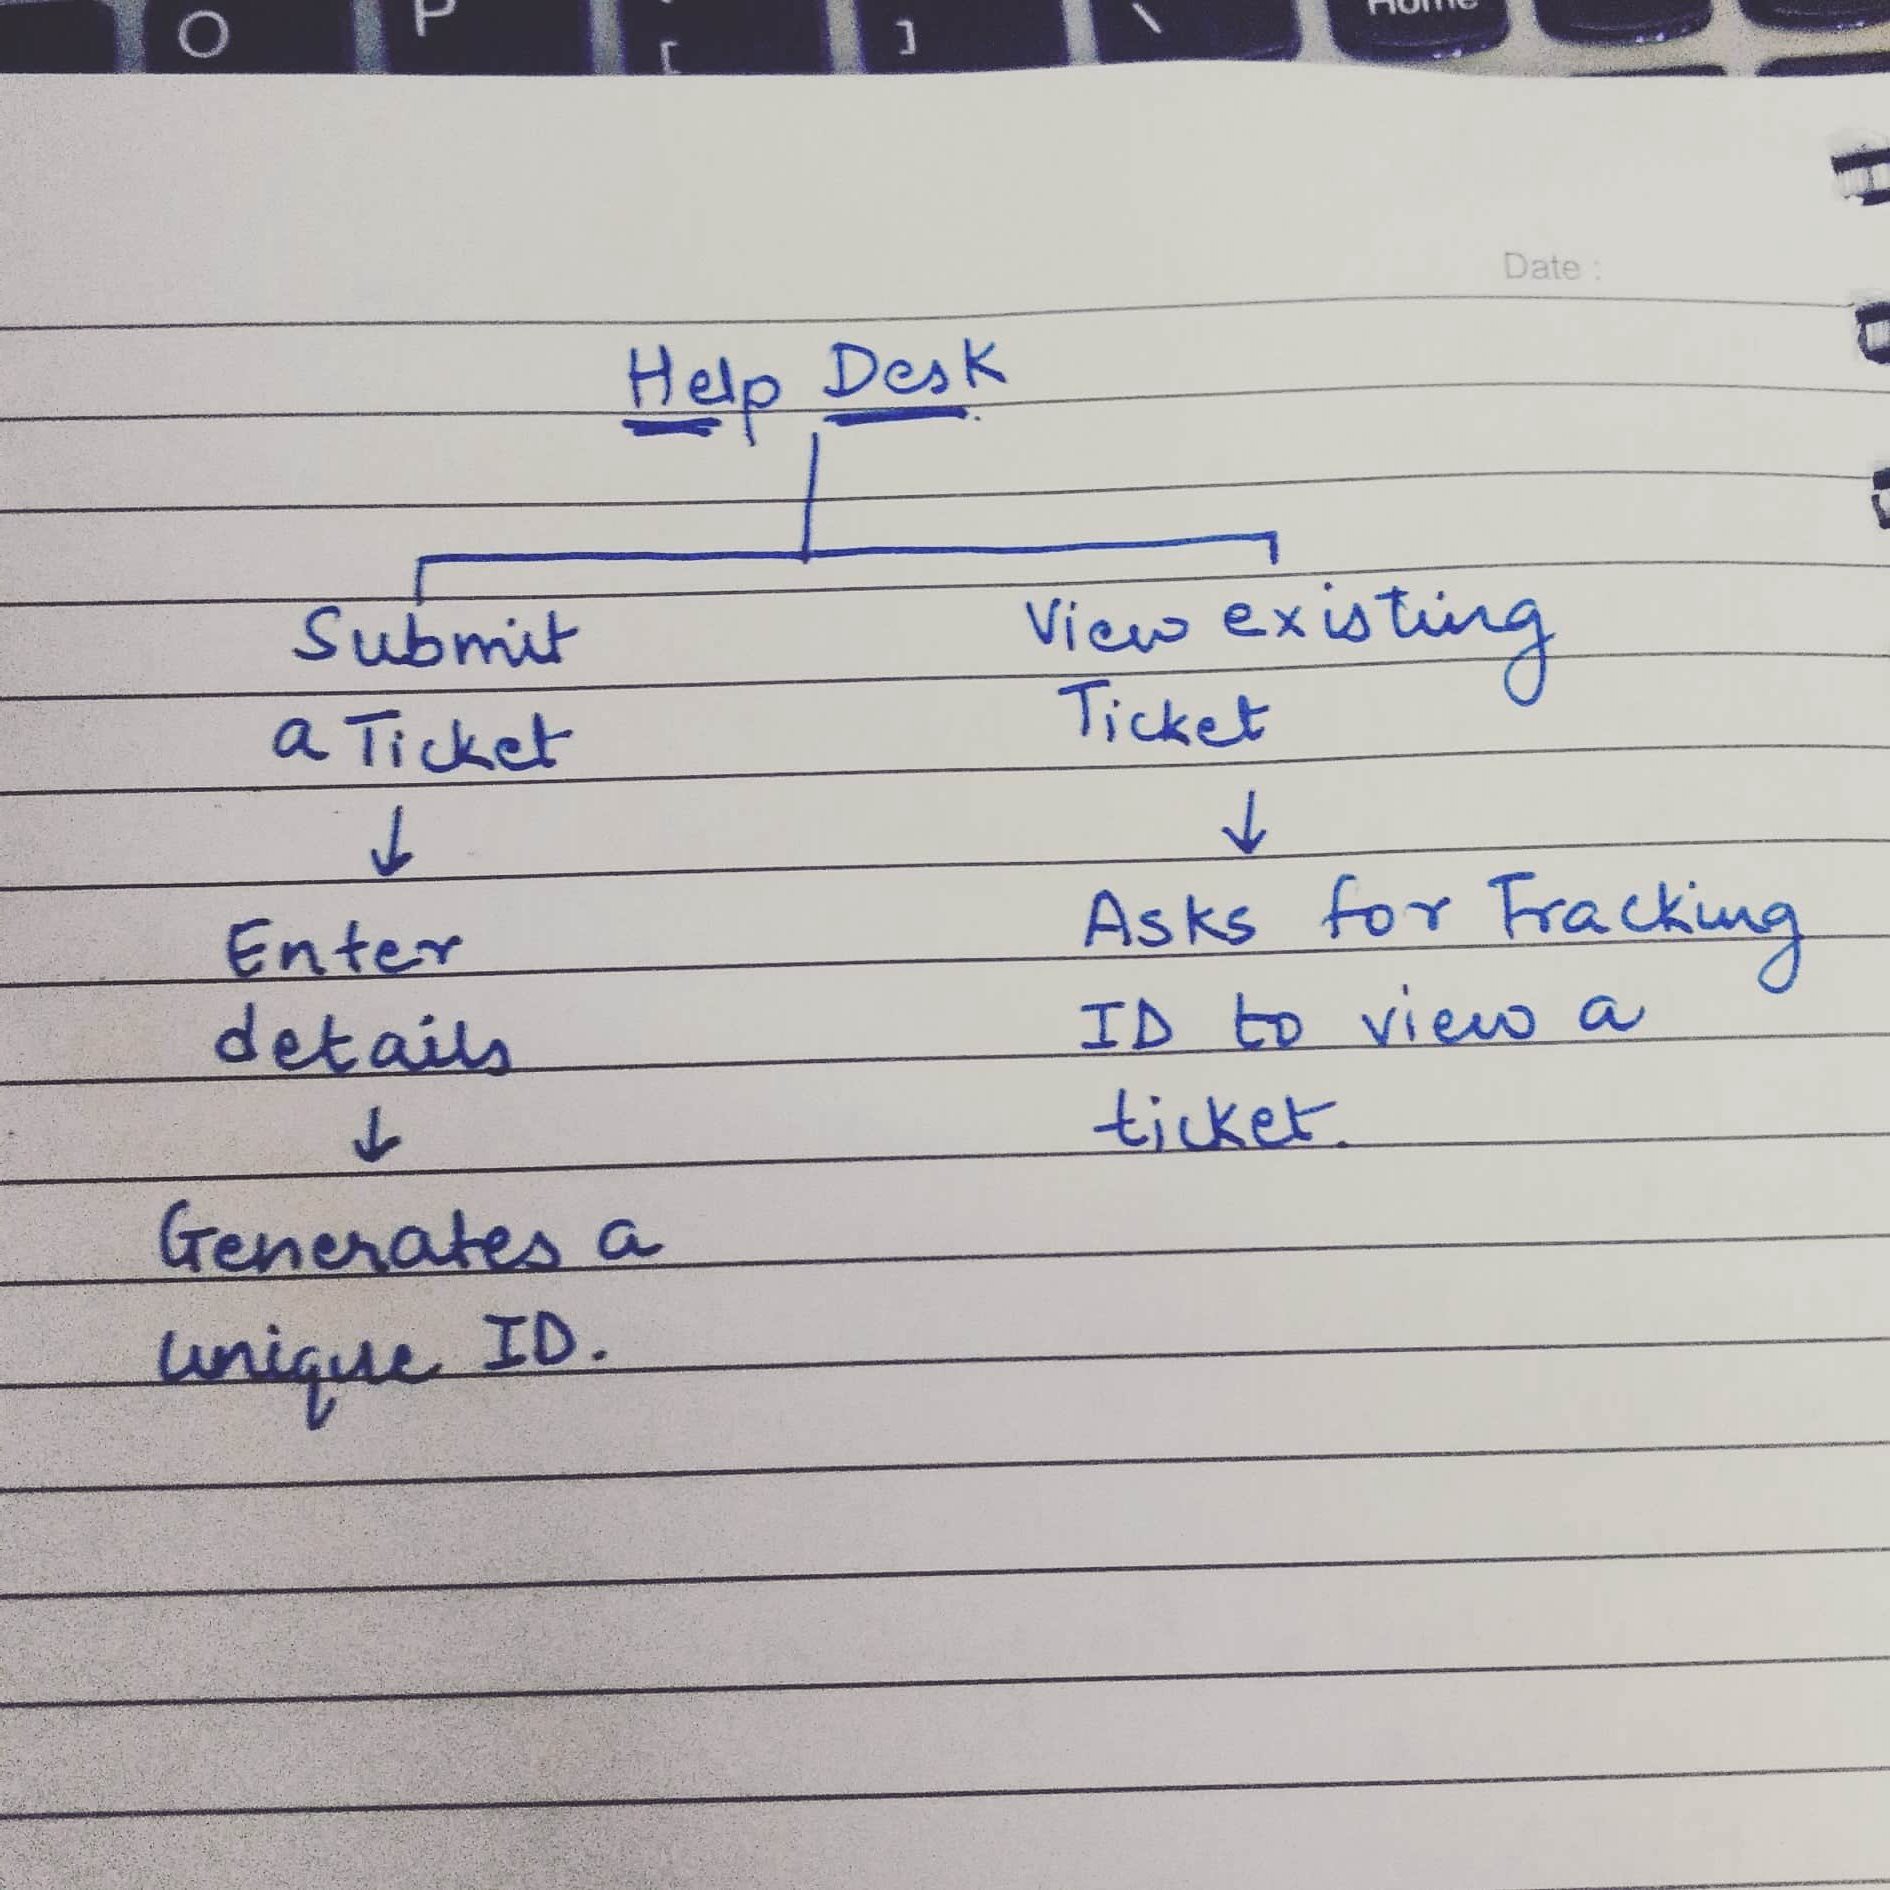 O P [ ] \ Home
Date :
Help Desk
Submit
a Ticket
View existing
Ticket
Enter
details
Asks for Tracking
ID to view a
ticket.
Generates a
unique ID.